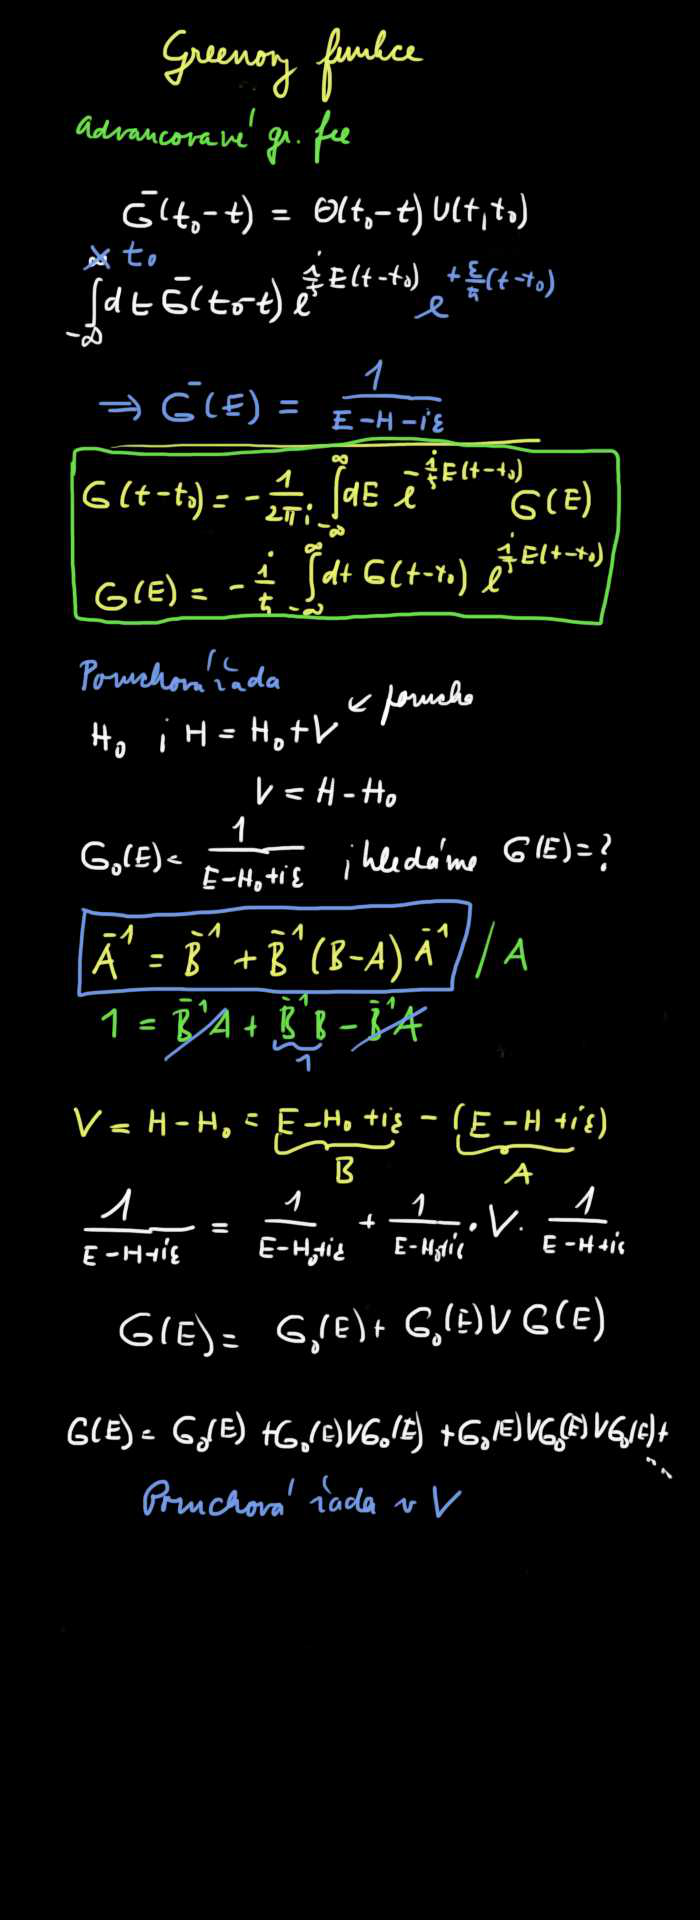 Greenovy funkce
advancované gr. fce
G⁻(t₀-t) = Θ(t₀-t) U(t,t₀)
∞ t₀
∫ dt G⁻(t₀-t) e^{i/ħ E(t-t₀)} e^{+ε/ħ(t-t₀)}
-∞
⇒ G⁻(E) = 1/(E-H-iε)
G(t-t₀) = -1/(2πi) ∫_{-∞}^{∞} dE e^{-i/ħ E(t-t₀)} G(E)
G(E) = -i/ħ ∫_{-∞}^{∞} dt G(t-t₀) e^{i/ħ E(t-t₀)}
Poruchová řada
H₀ ; H = H₀+V ↙ porucha
V = H-H₀
G₀(E) = 1/(E-H₀+iε) ; hledáme G(E)=?
A⁻¹ = B⁻¹ + B⁻¹(B-A)A⁻¹ / A
1 = B⁻¹A + B⁻¹B - B⁻¹A
1
V = H-H₀ = E-H₀+iε - (E-H+iε)
B A
1/(E-H+iε) = 1/(E-H₀+iε) + 1/(E-H₀+iε) · V · 1/(E-H+iε)
G(E) = G₀(E) + G₀(E) V G(E)
G(E) = G₀(E) + G₀(E)VG₀(E) + G₀(E)VG₀(E)VG₀(E)+...
Poruchová řada v V